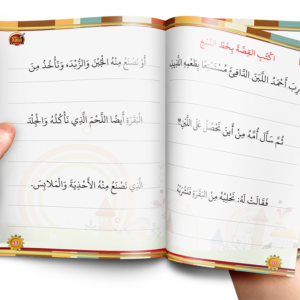 اكْتُبِ القِصَّةَ بِخَطِّ النَّسْخِ
أَحْمَدُ اللَّبَنَ الدَّافِئَ مُسْتَمْتِعًا بِطَعْمِهِ اللَّذِيذِ
ثُمَّ سَأَلَ أُمَّهُ مِنْ أَيْنَ نَحْصُلُ عَلَى اللَّبَنِ؟
فَقَالَتْ لَهُ: نَحْلِبُهُ مِنَ البَقَرَةِ فَنَشْرَبُهُ
أَوْ نَصْنَعُ مِنْهُ الجُبْنَ وَالزُّبْدَ، وَنَأْخُذُ مِنَ
البَقَرَةِ أَيْضًا اللَّحْمَ الَّذِي نَأْكُلُهُ وَالجِلْدَ
الَّذِي نَصْنَعُ مِنْهُ الأَحْذِيَةَ وَالمَلَابِسَ.